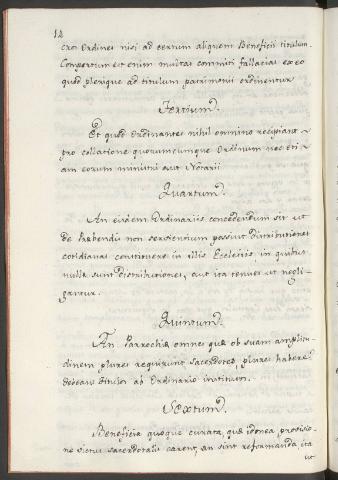 12
cros Ordines nisi ad certum aliquem Beneficii titulum.
Compertum est enim multas committi fallacias ex eo
quod plerique ad titulum patrimonii ordinentur
Tertium.
Et quod Ordinantes nihil omnino recipiant
pro collatione quorumcumque Ordinum nec eti-
am eorum ministri aut Notarii
Quartum.
An eisdem Ordinariis concedendum sit ut
de Præbendis non servientium possint distributiones
cotidianas constituere in illis Ecclesiis, in quibus
nullæ sunt distributiones, aut ita tenues ut negli-
gantur.
Quintum.
An Parrochiæ omnes quæ ob suam amplitu-
dinem plures requirunt sacerdotes, plures habere
debeant titulos ab Ordinario instituen.
Sextum.
Beneficia quoque curata, quæ idonea provisio-
ne victus sacerdotalis carent, an sint reformanda ita
ut